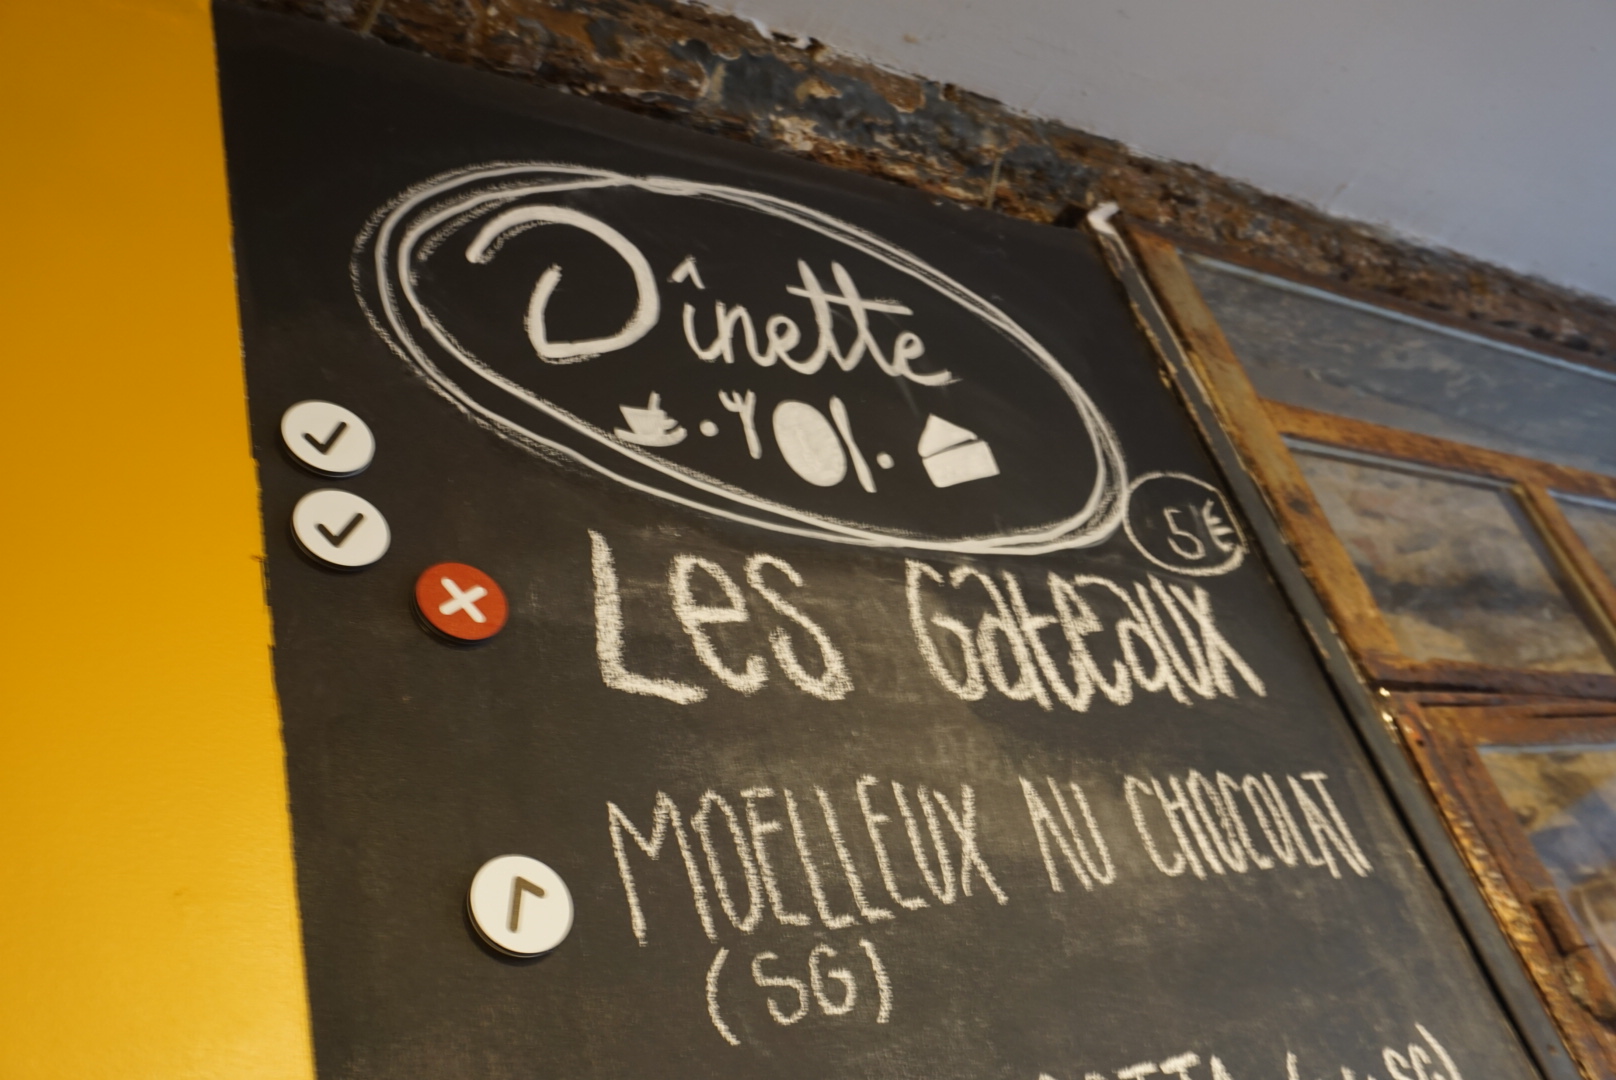 Dînette
5€
Les Gateaux
MOELLEUX AU CHOCOLAT
(SG)